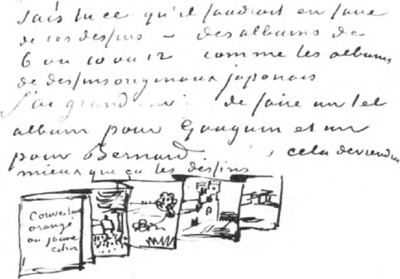 Sais tu ce qu'il faudrait en faire
de ces dessins – des albums de
6 ou 10 ou 12 comme les albums
de dessins originaux japonais
J'ai grand envie de faire un tel
album pour Gauguin et un
pour Bernard, cela deviendra
mieux que ça les dessins
Couverture
orangé
ou jaune
citron